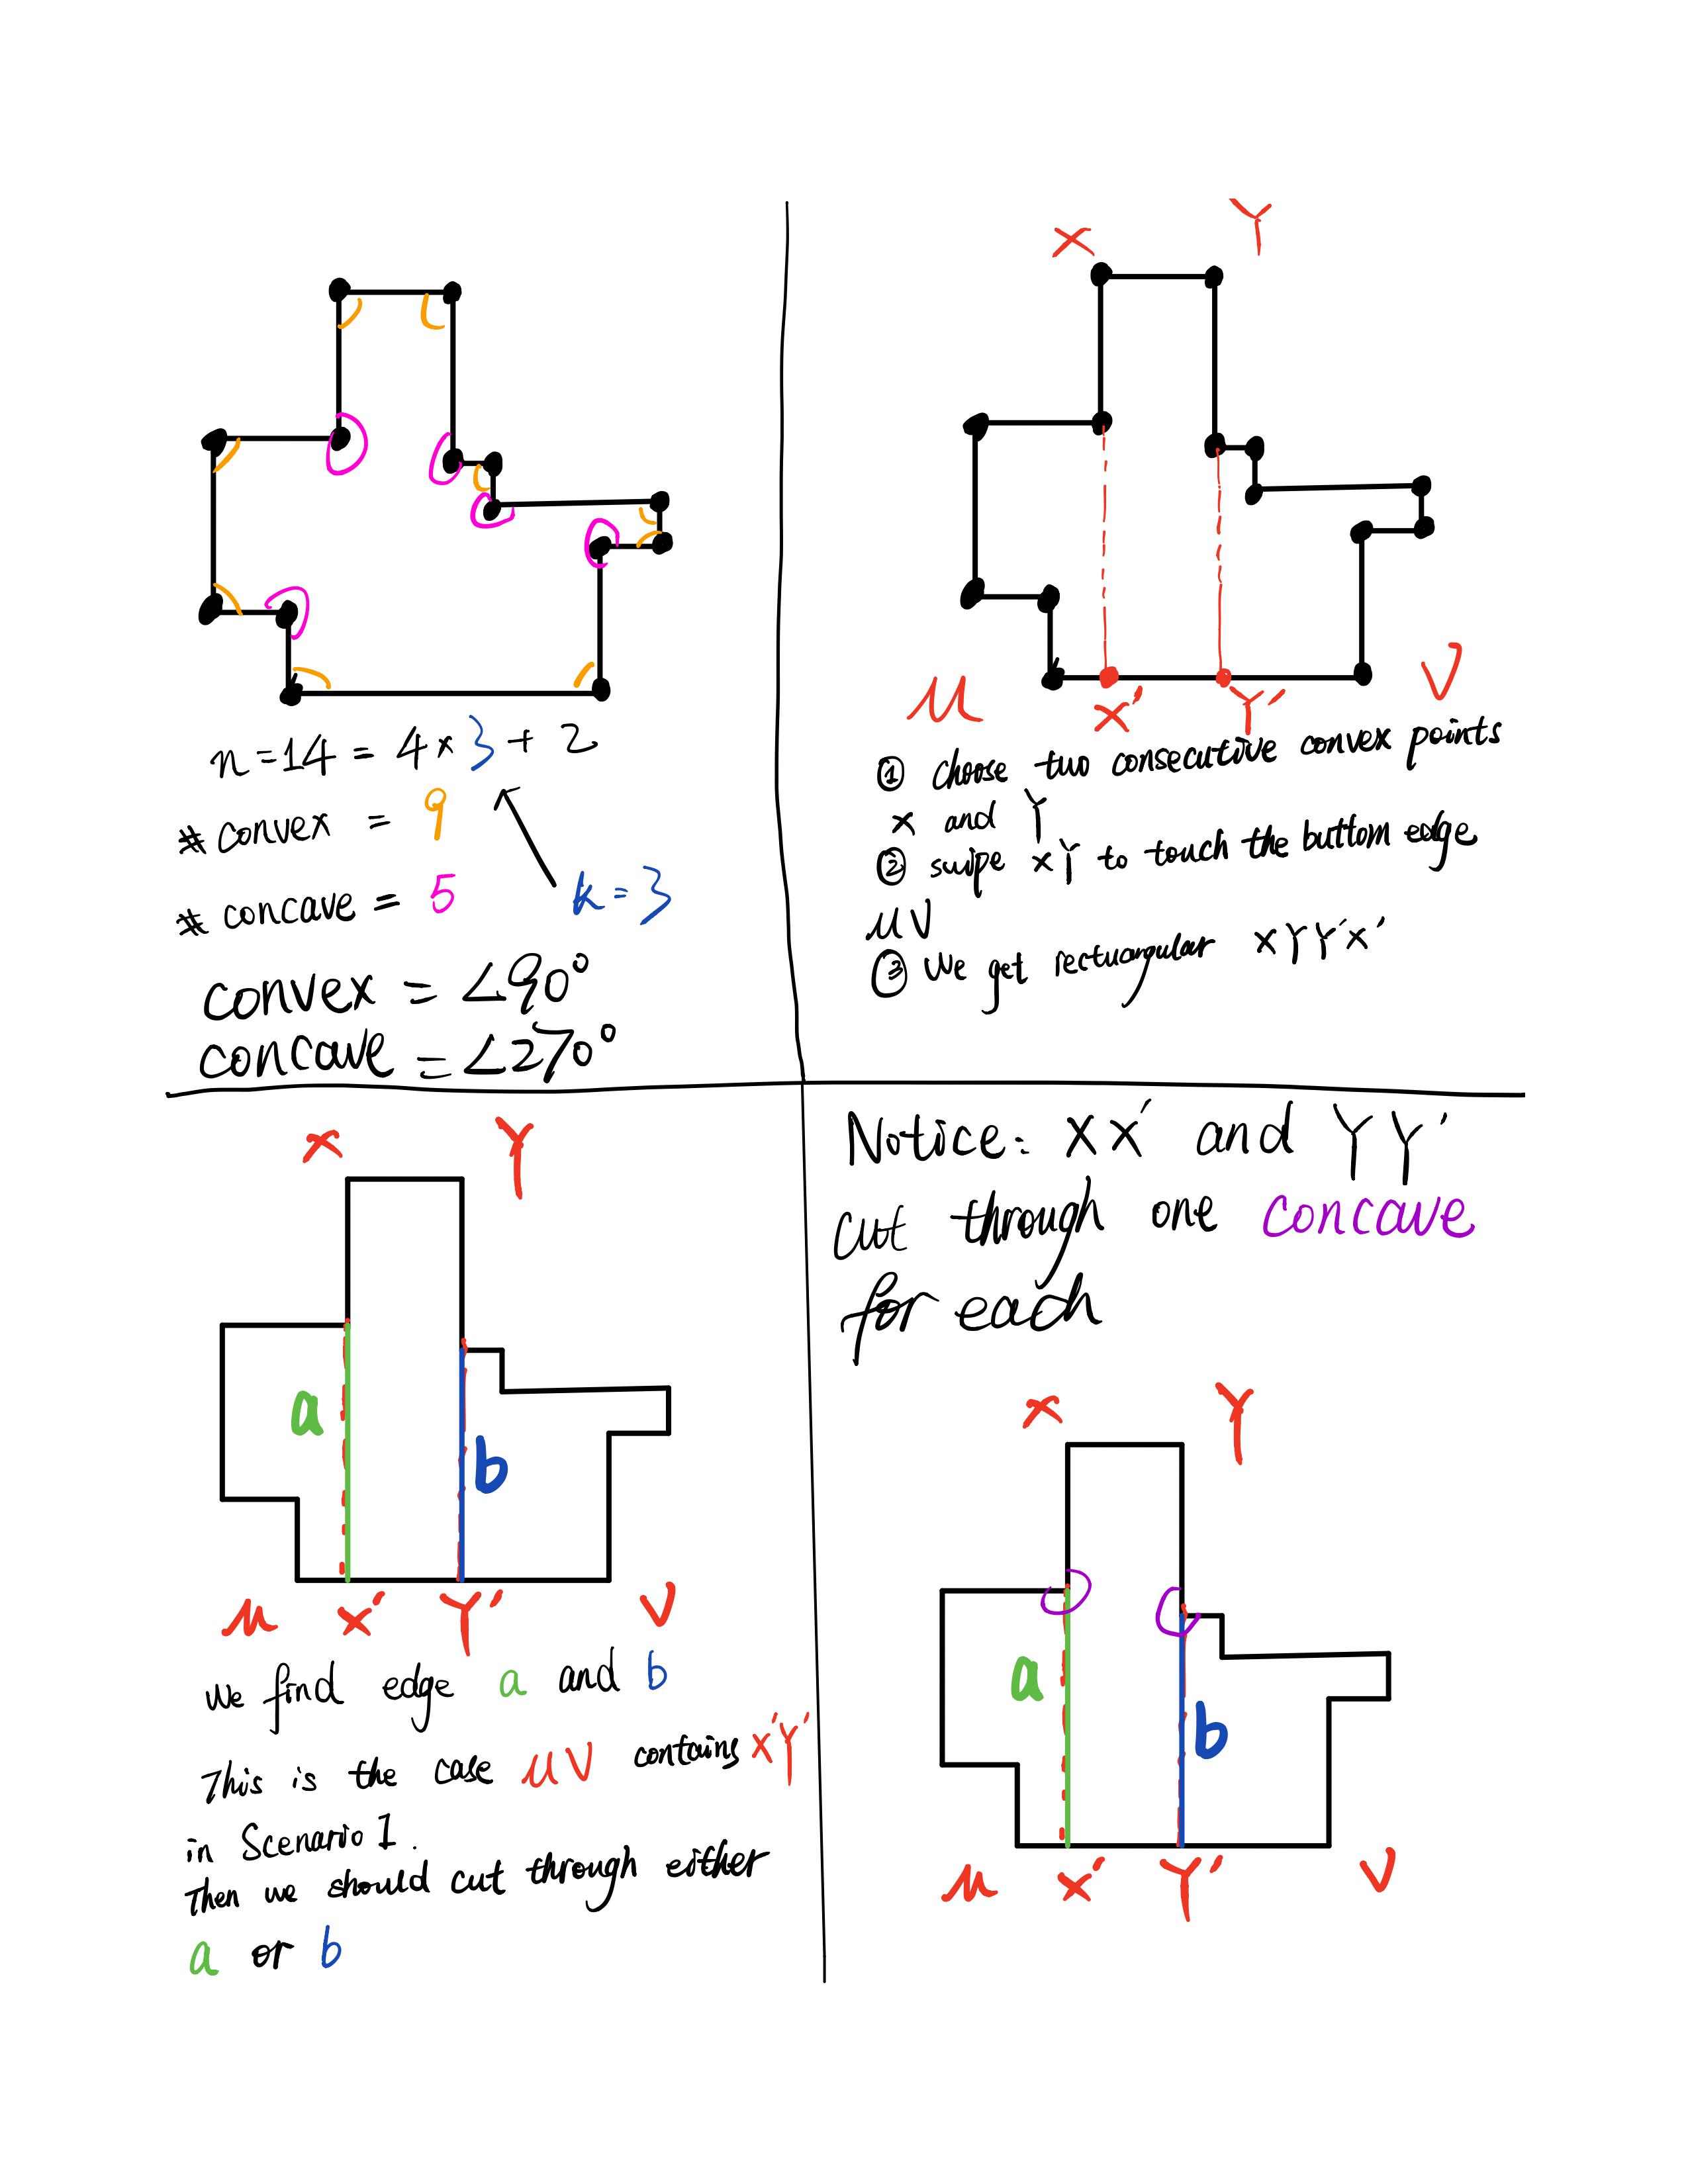 n=14 = 4×3 + 2
# convex = 9
# concave = 5
k=3
convex = ∠90°
concave = ∠270°
X Y
μ X' Y' V
① choose two consecutive convex points
X and Y
② swipe XY to touch the buttom edge
μV
③ We get rectuangular XYY'X'
X Y
a
b
μ X' Y' V
we find edge a and b
This is the case μV contains X'Y'
in Scenario 1.
Then we should cut through either
a or b
Notice: XX' and YY'
cut through one concave
for each
X Y
a
b
μ X' Y' V